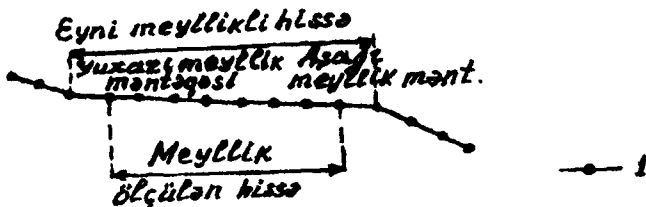 Eyni meyllikli hissə
Yuxarı meyllik Aşağı
məntəqəsi meyllik mənt.
Meyllik
ölçülən hissə
1